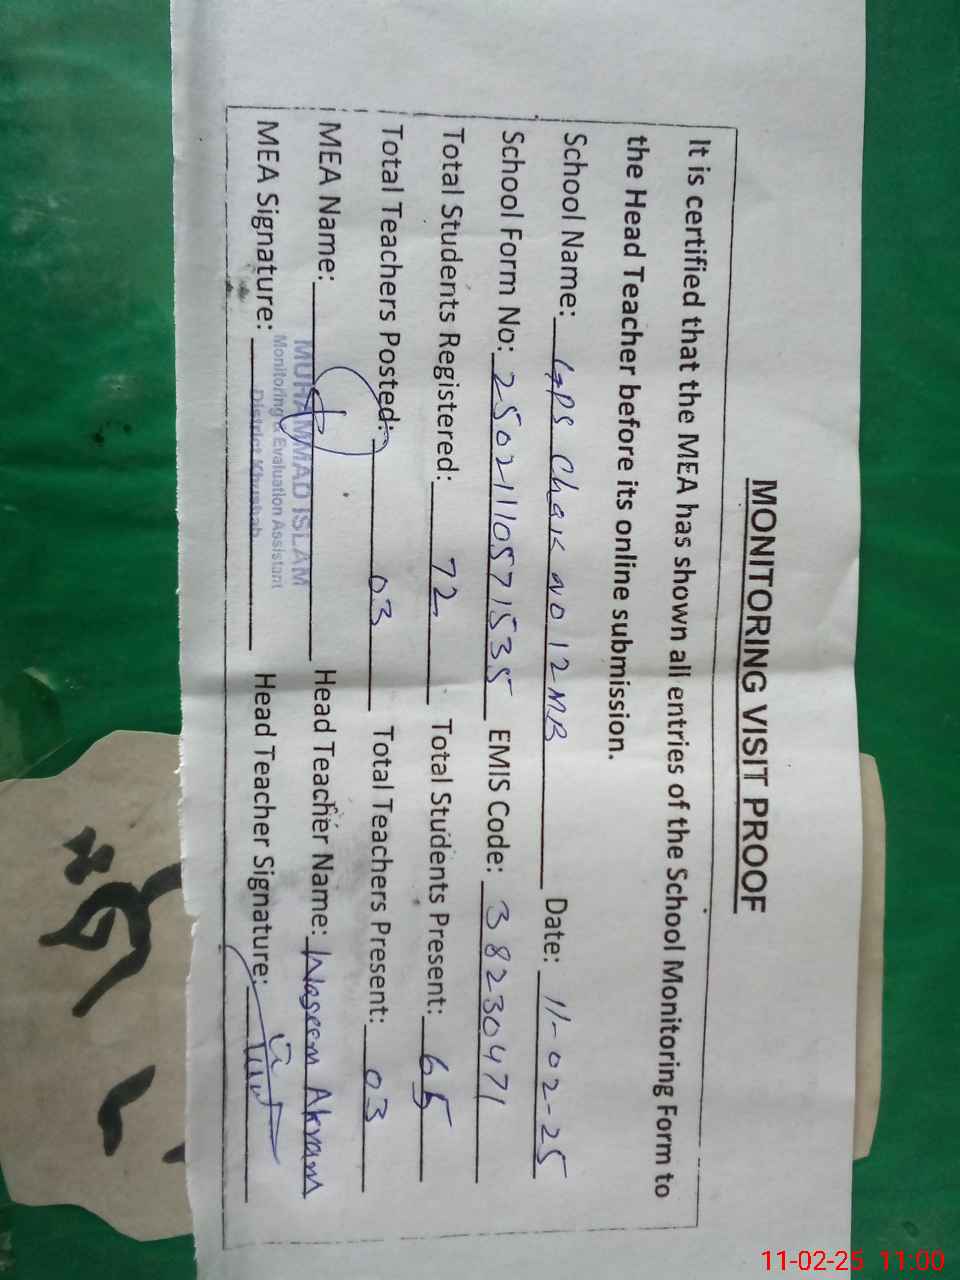 MONITORING VISIT PROOF
It is certified that the MEA has shown all entries of the School Monitoring Form to
the Head Teacher before its online submission.
School Name: GPS Chak No 12 MB Date: 11-02-25
School Form No: 2502110571535 EMIS Code: 38230471
Total Students Registered: 72 Total Students Present: 65
Total Teachers Posted: 03 Total Teachers Present: 03
MEA Name: Head Teacher Name: Waseem Akram
MUHAMMAD ISLAM
Monitoring & Evaluation Assistant
District Khushab
MEA Signature: Head Teacher Signature:
11-02-25 11:00